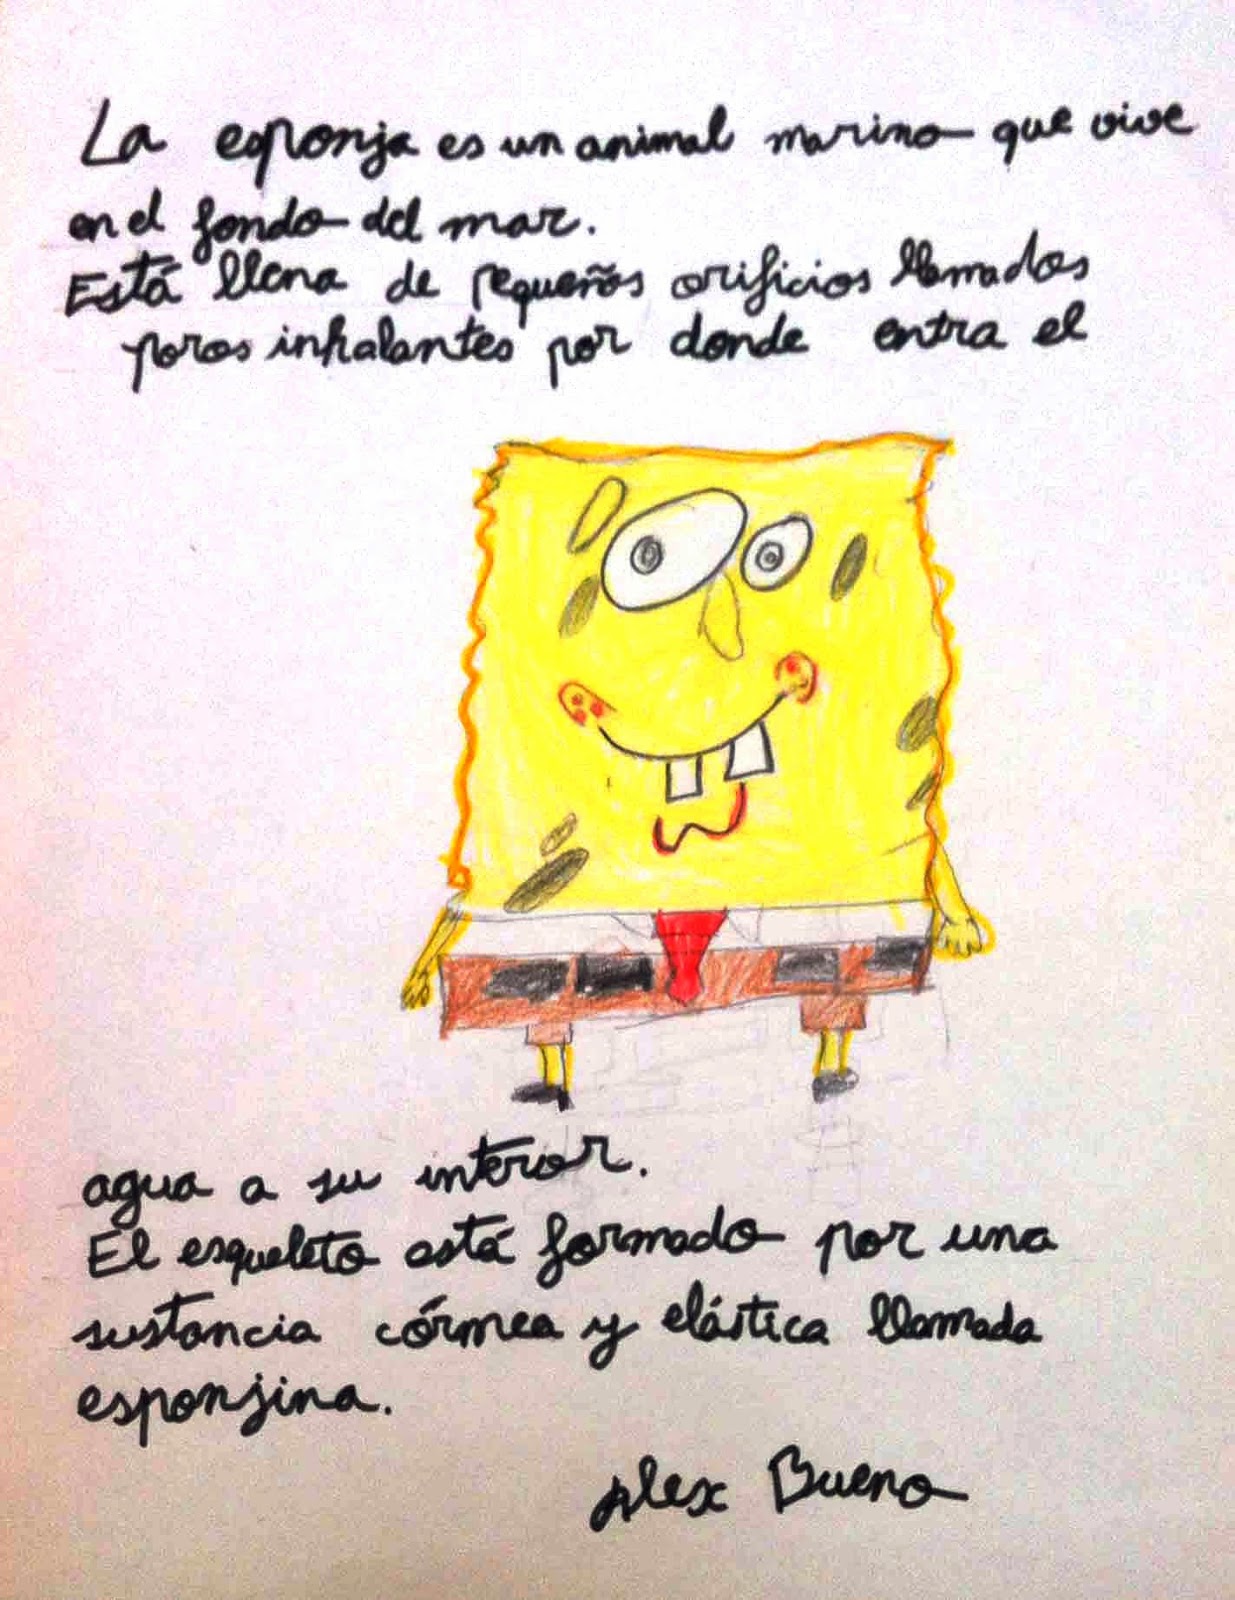 La esponja es un animal marino que vive
en el fondo del mar.
Está llena de pequeños orificios llamados
poros inhalantes por donde entra el
agua a su interior.
El esqueleto está formado por una
sustancia córnea y elástica llamada
esponjina.
Alex Bueno